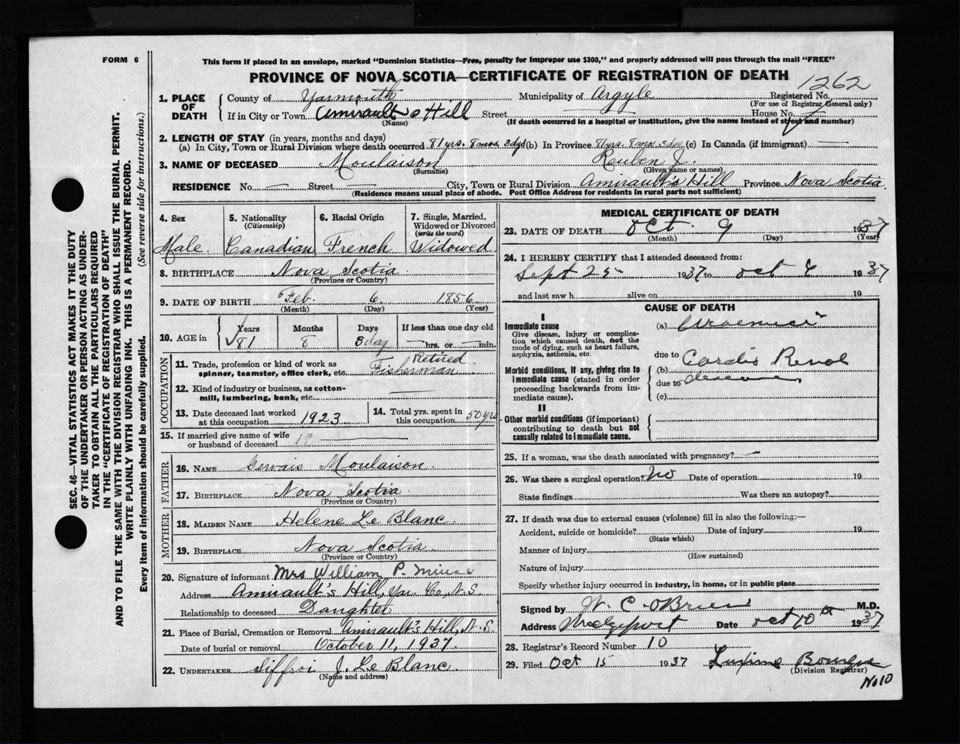 FORM 6
This form if placed in an envelope, marked "Dominion Statistics—Free, penalty for improper use $300," and properly addressed will pass through the mail "FREE"
PROVINCE OF NOVA SCOTIA—CERTIFICATE OF REGISTRATION OF DEATH
1262
1. PLACE OF DEATH
County of Yarmouth Municipality of Argyle Registered No.
(For use of Registrar General only)
If in City or Town Amirault's Hill Street House No.
(Name) (If death occurred in a hospital or institution, give the name instead of street and number)
2. LENGTH OF STAY (in years, months and days)
(a) In City, Town or Rural Division where death occurred 81 yrs. 8 mos. 3 dys (b) In Province 81 yrs. 8 mos. 3 dys (c) In Canada (if immigrant)
3. NAME OF DECEASED Moulaison Reuben J.
(Surname) (Given name or names)
RESIDENCE No. — Street — City, Town or Rural Division Amirault's Hill Province Nova Scotia
(Residence means usual place of abode. Post Office Address for residents in rural parts not sufficient)
4. Sex
Male
5. Nationality
(Citizenship)
Canadian
6. Racial Origin
French
7. Single, Married, Widowed or Divorced
(write the word)
Widowed
8. BIRTHPLACE Nova Scotia
(Province or Country)
9. DATE OF BIRTH Feb. 6 1856
(Month) (Day) (Year)
10. AGE in
Years Months Days If less than one day old
81 8 3 day — hrs. or — min.
OCCUPATION
11. Trade, profession or kind of work as spinner, teamster, office clerk, etc. Retired Fisherman
12. Kind of industry or business, as cotton-mill, lumbering, bank, etc.
13. Date deceased last worked at this occupation 1923
14. Total yrs. spent in this occupation 50 yrs
15. If married give name of wife or husband of deceased
FATHER
16. NAME Gervais Moulaison
17. BIRTHPLACE Nova Scotia
(Province or Country)
MOTHER
18. MAIDEN NAME Helene Le Blanc
19. BIRTHPLACE Nova Scotia
(Province or Country)
20. Signature of informant Mrs William P. Miuse
Address Amirault's Hill, Yar. Co., N.S.
Relationship to deceased Daughter
21. Place of Burial, Cremation or Removal Amirault's Hill, N.S.
Date of burial or removal October 11, 1937
22. UNDERTAKER Siffroi J. Le Blanc
(Name and address)
MEDICAL CERTIFICATE OF DEATH
23. DATE OF DEATH Oct. 9 1937
(Month) (Day) (Year)
24. I HEREBY CERTIFY that I attended deceased from:
Sept 25 1937 to Oct 9 1937
and last saw h alive on 19
CAUSE OF DEATH
I
Immediate cause
Give disease, injury or complication which caused death, not the mode of dying, such as heart failure, asphyxia, asthenia, etc.
(a) Uraemia
due to
Morbid conditions, if any, giving rise to immediate cause (stated in order proceeding backwards from immediate cause).
(b) Cardio Renal
due to disease
(c)
II
Other morbid conditions (if important) contributing to death but not causally related to immediate cause.
25. If a woman, was the death associated with pregnancy? —
26. Was there a surgical operation? No Date of operation 19
State findings Was there an autopsy?
27. If death was due to external causes (violence) fill in also the following:—
Accident, suicide or homicide? Date of injury 19
(State which)
Manner of injury
(How sustained)
Nature of injury
Specify whether injury occurred in industry, in home, or in public place
Signed by W. C. O'Brien M.D.
Address Wedgeport Date Oct 10th 1937
28. Registrar's Record Number 10
29. Filed Oct 15 1937 Bourque
(Division Registrar)
No 10
SEC. 46—VITAL STATISTICS ACT MAKES IT THE DUTY
OF THE UNDERTAKER OR PERSON ACTING AS UNDERTAKER TO OBTAIN ALL THE PARTICULARS REQUIRED
IN THE "CERTIFICATE OF REGISTRATION OF DEATH"
AND TO FILE THE SAME WITH THE DIVISION REGISTRAR WHO SHALL ISSUE THE BURIAL PERMIT.
WRITE PLAINLY WITH UNFADING INK. THIS IS A PERMANENT RECORD.
Every item of information should be carefully supplied. (See reverse side for instructions.)